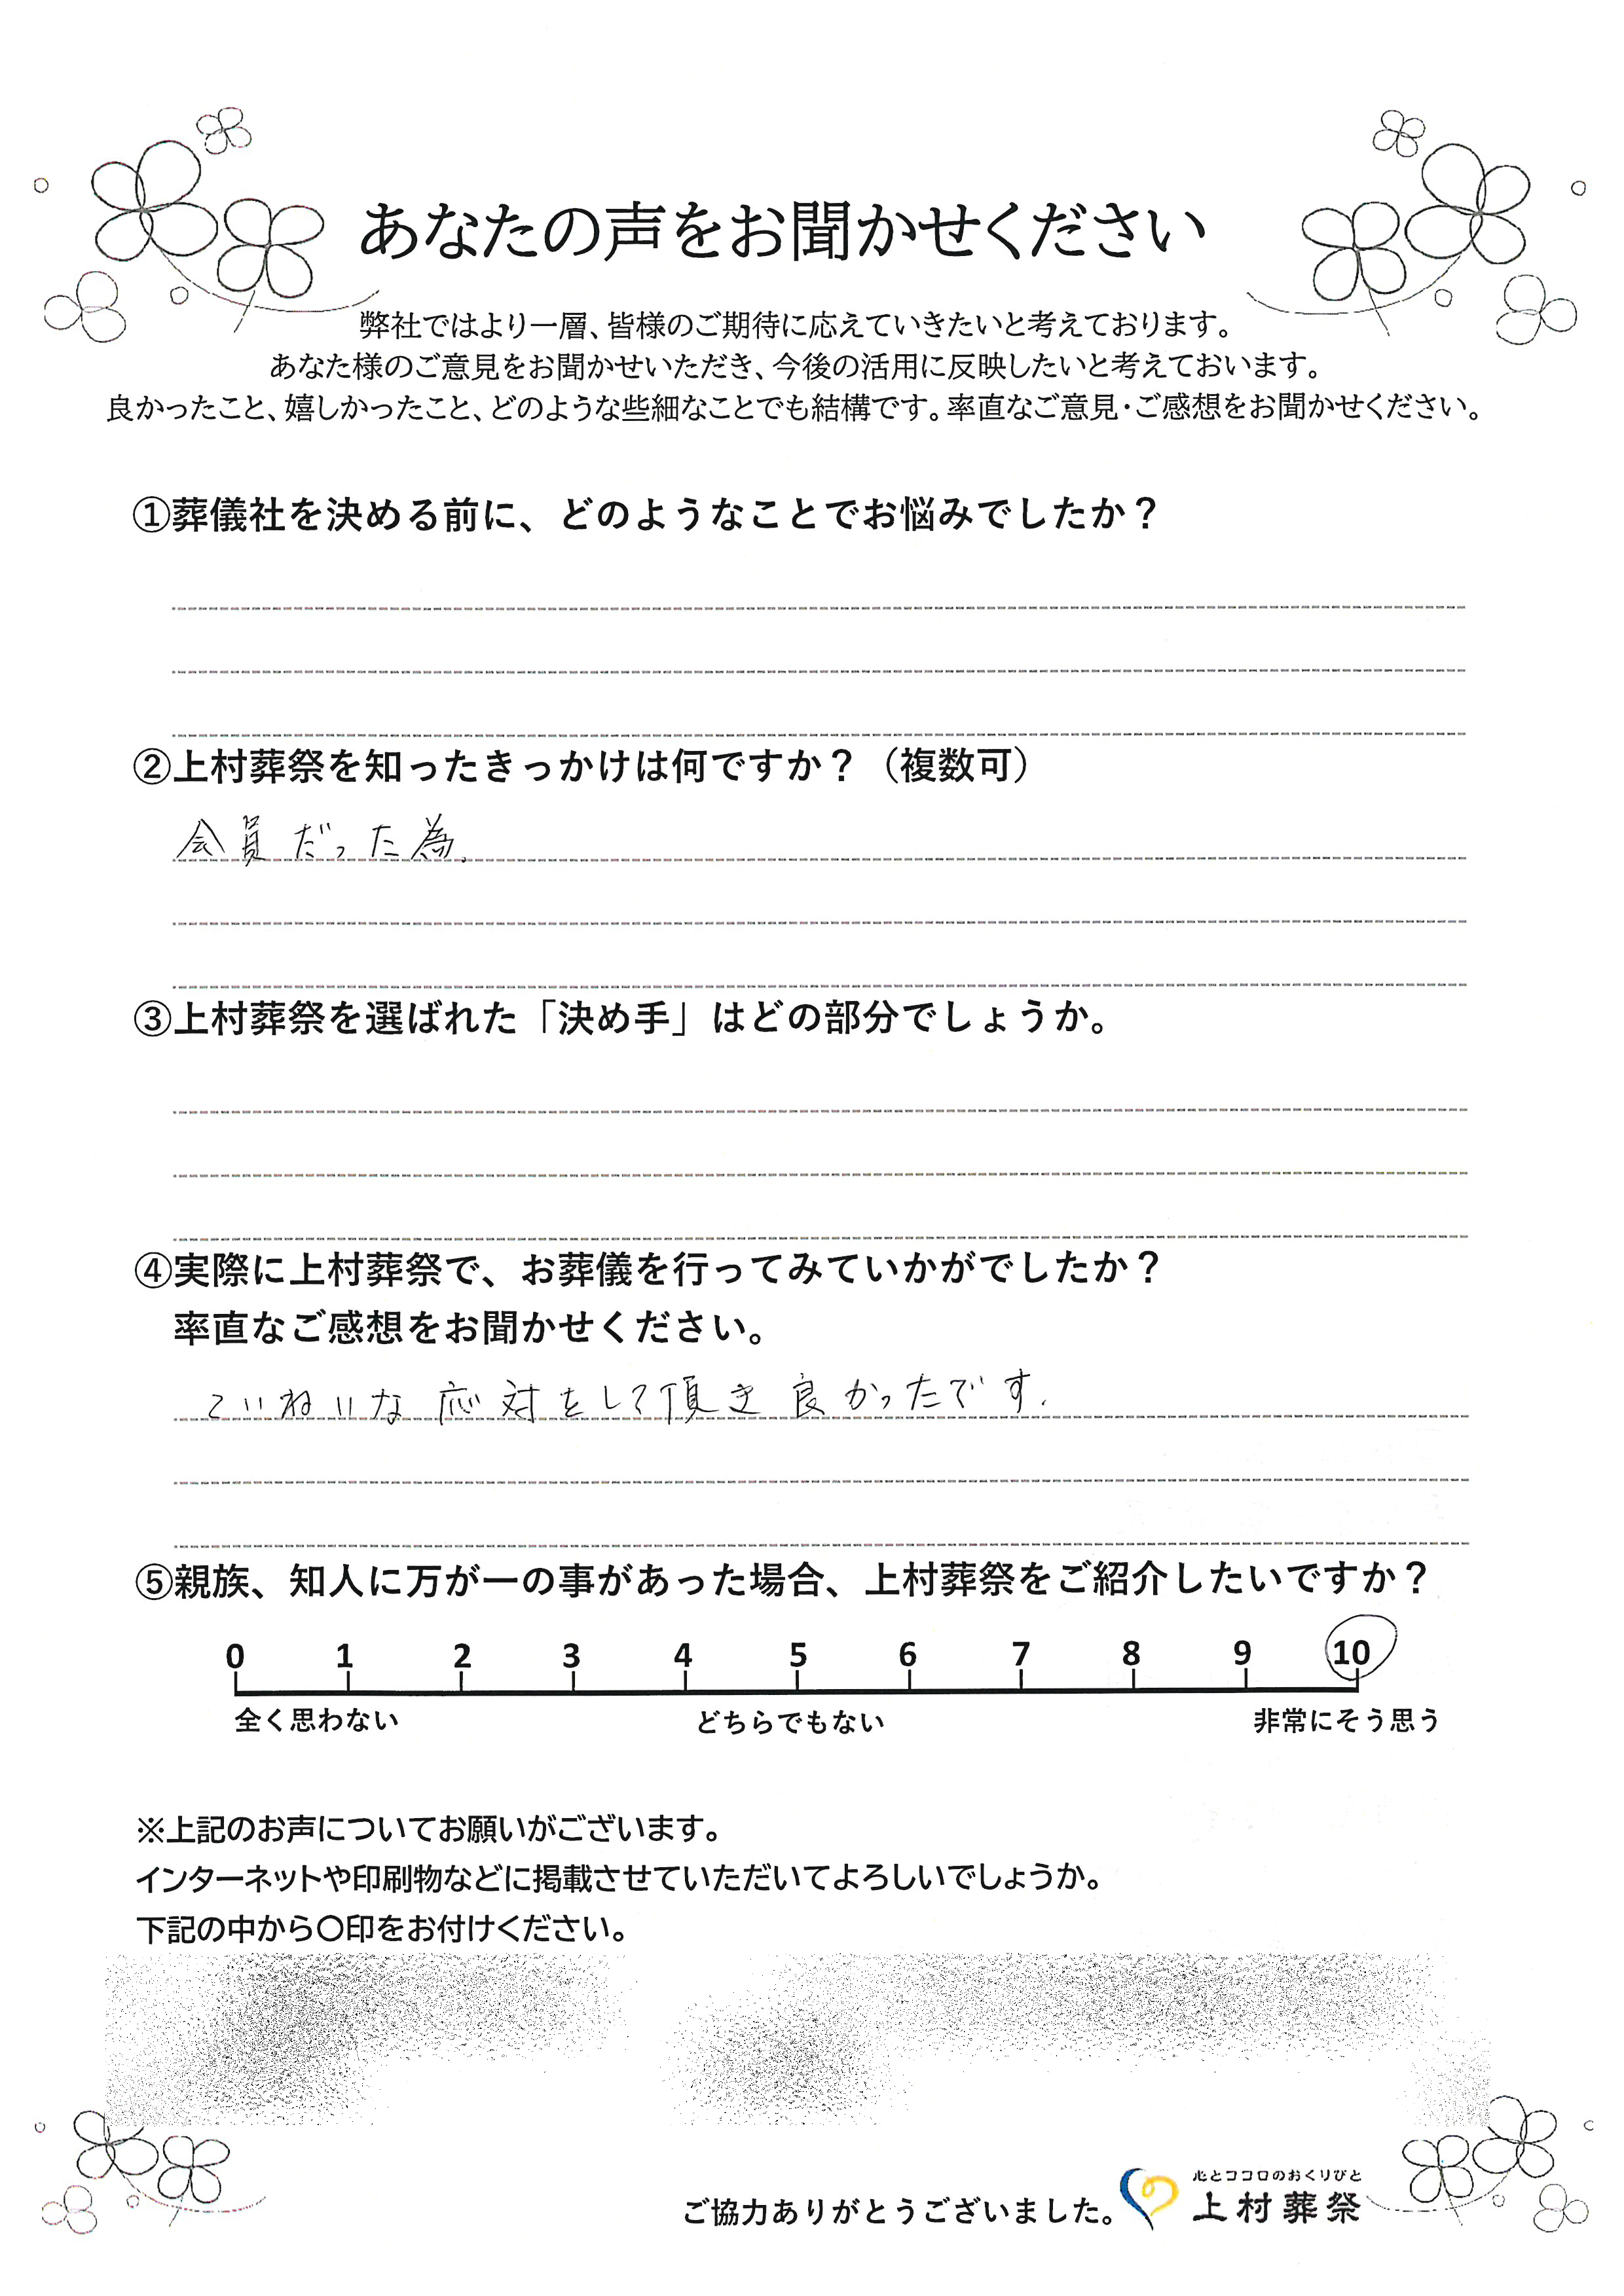 あなたの声をお聞かせください
弊社ではより一層、皆様のご期待に応えていきたいと考えております。
あなた様のご意見をお聞かせいただき、今後の活用に反映したいと考えておいます。
良かったこと、嬉しかったこと、どのような些細なことでも結構です。率直なご意見・ご感想をお聞かせください。
①葬儀社を決める前に、どのようなことでお悩みでしたか？
②上村葬祭を知ったきっかけは何ですか？（複数可）
会員だった為.
③上村葬祭を選ばれた「決め手」はどの部分でしょうか。
④実際に上村葬祭で、お葬儀を行ってみていかがでしたか？
率直なご感想をお聞かせください。
ていねいな応対をして頂き良かったです.
⑤親族、知人に万が一の事があった場合、上村葬祭をご紹介したいですか？
0 1 2 3 4 5 6 7 8 9 10
全く思わない どちらでもない 非常にそう思う
※上記のお声についてお願いがございます。
インターネットや印刷物などに掲載させていただいてよろしいでしょうか。
下記の中から〇印をお付けください。
心とココロのおくりびと
ご協力ありがとうございました。 上村葬祭